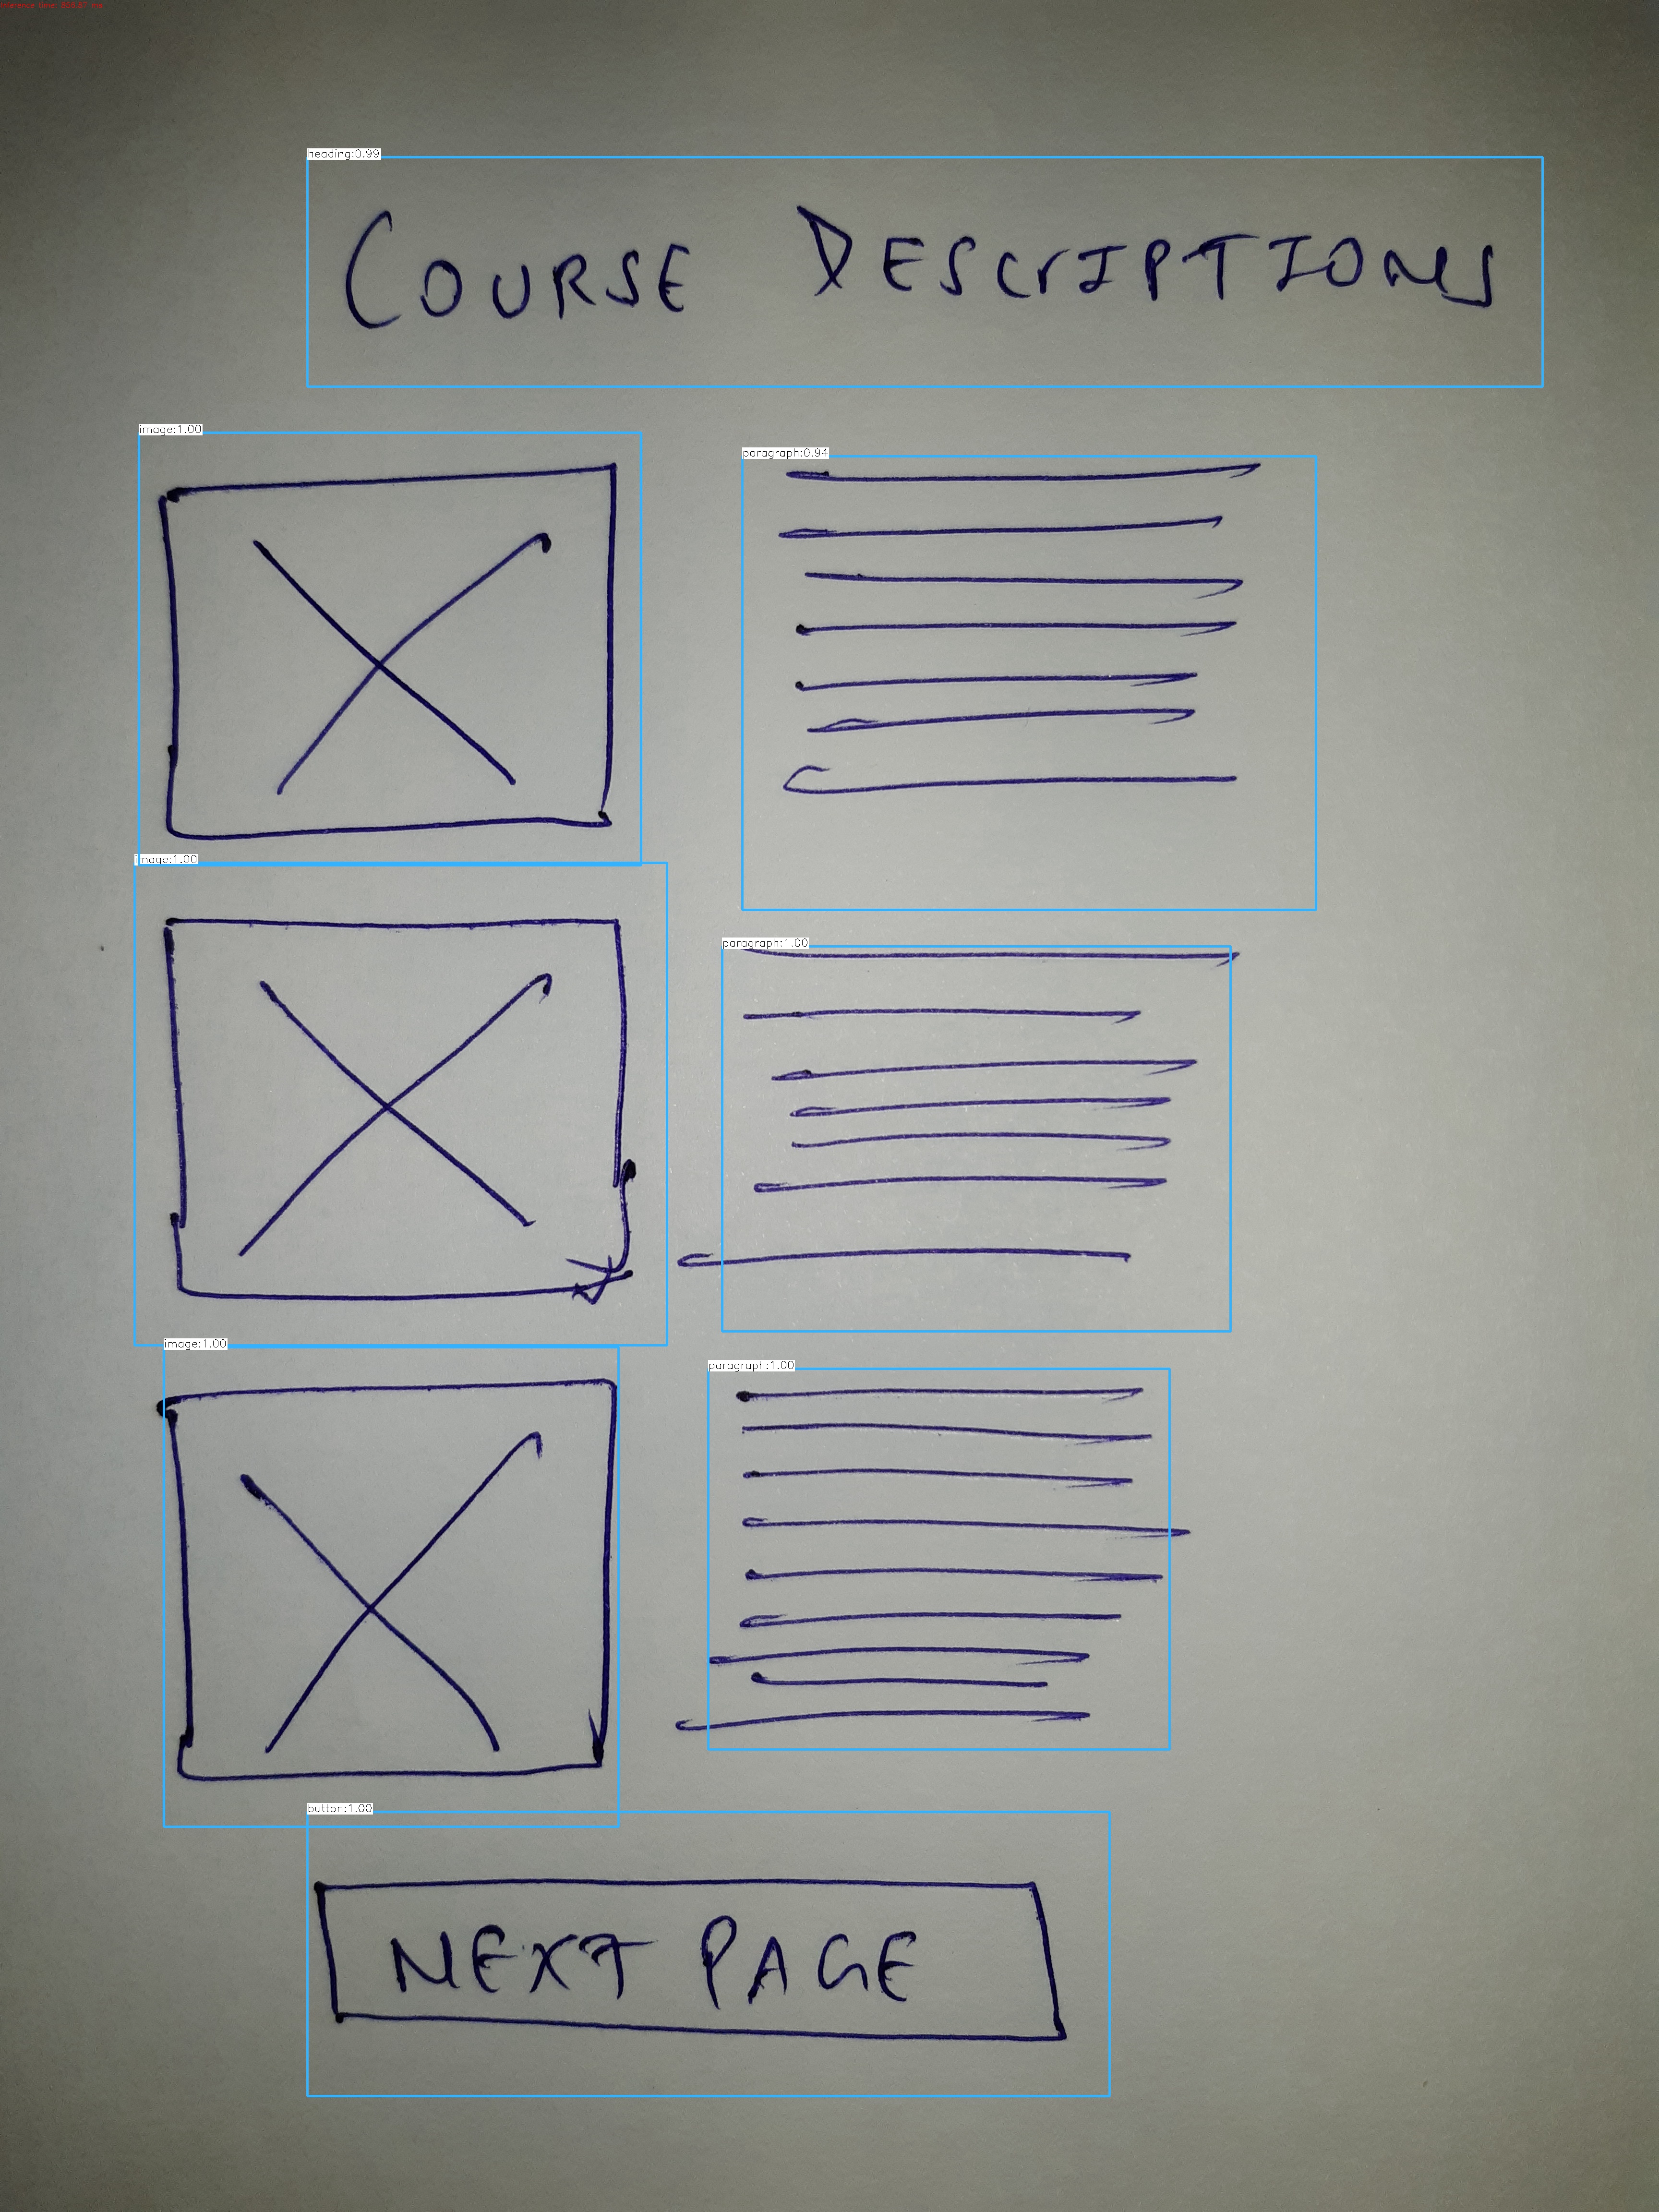 heading:0.99
COURSE DESCRIPTIONS
image:1.00
paragraph:0.94
image:1.00
paragraph:1.00
image:1.00
paragraph:1.00
button:1.00
NEXT PAGE